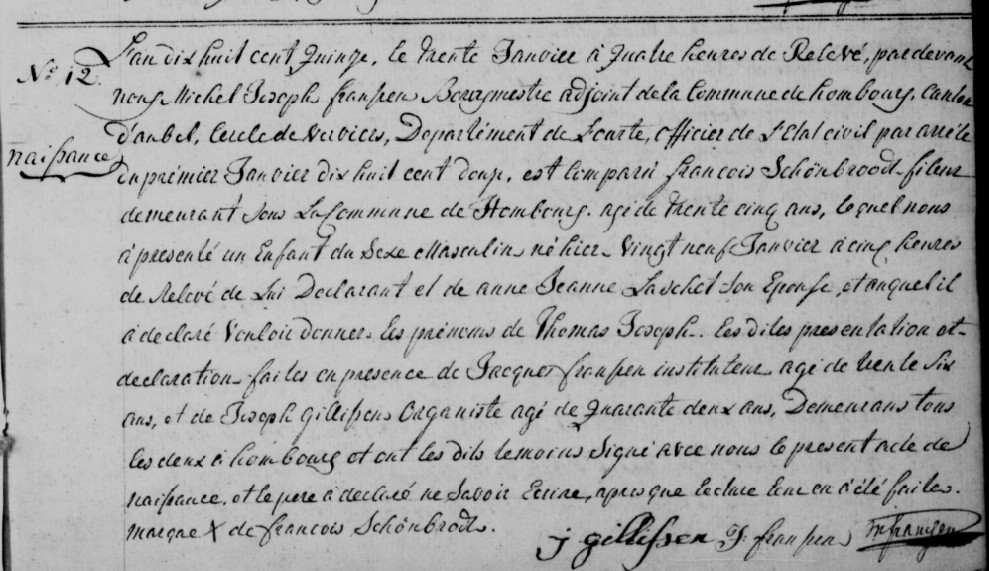 N.º 12.
naissance
L'an dix huit cent Quinze, le trente Janvier à Quatre heures de Relevé, par devant
nous Michel Joseph franssen Bourgmestre adjoint de la Commune de hombourg, Canton
d'aubel, Cercle de Verviers, Departément de Lourte, officier de l'Etat civil par arrêté
du prémier Janvier dix huit cent douze, est Comparu francois Schönbroodt fileur
demeurant sous La Commune de Hombourg. agé de trente cinq ans, lequel nous
à presenté un Enfant du Sexe Masculin né hier Vingt neuf Janvier à cinq heures
de Relevé de Lui Declarant et de anne Jeanne Laschet son Epouse, et auquel il
à declaré Vouloir donner Les prénoms de Thomas Joseph. Les dites presentation et
declaration faites en presence de Jacques franssen instituteur agé de trente Six
ans, et de Joseph gillissens Organiste agé de Quarante deux ans, Demeurans tous
les deux à hombourg et ont les dits temoins Signé avec nous le present acte de
naissance, et le pere à declaré ne Savoir Ecrire, apres que lecture leur en à été faite.
marque X de francois Schönbrodt.
j gillissen J. franssen